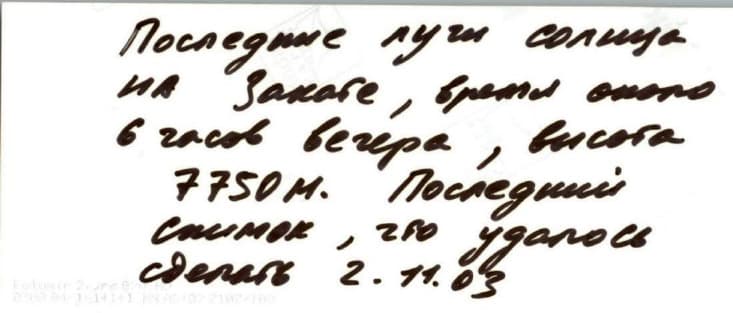 Последние лучи солнца
на закате, время около
6 часов вечера, высота
7750 м. Последний
снимок, что удалось
сделать 2.11.03